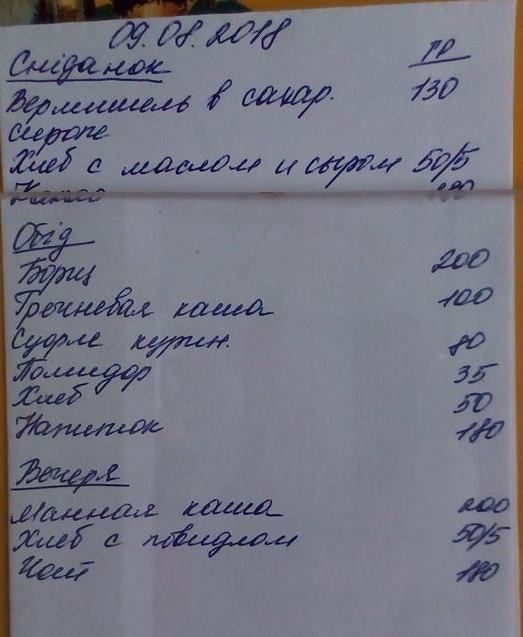 09.08.2018
Сніданок гр
Вермишель в сахар. 130
сиропе
Хлеб с маслом и сыром 50/5
Какао 180
Обід
Борщ 200
Гречневая каша 100
Суфле курин. 80
Помидор 35
Хлеб 50
Напиток 180
Вечеря
Манная каша 200
Хлеб с повидлом 50/5
Чай 180